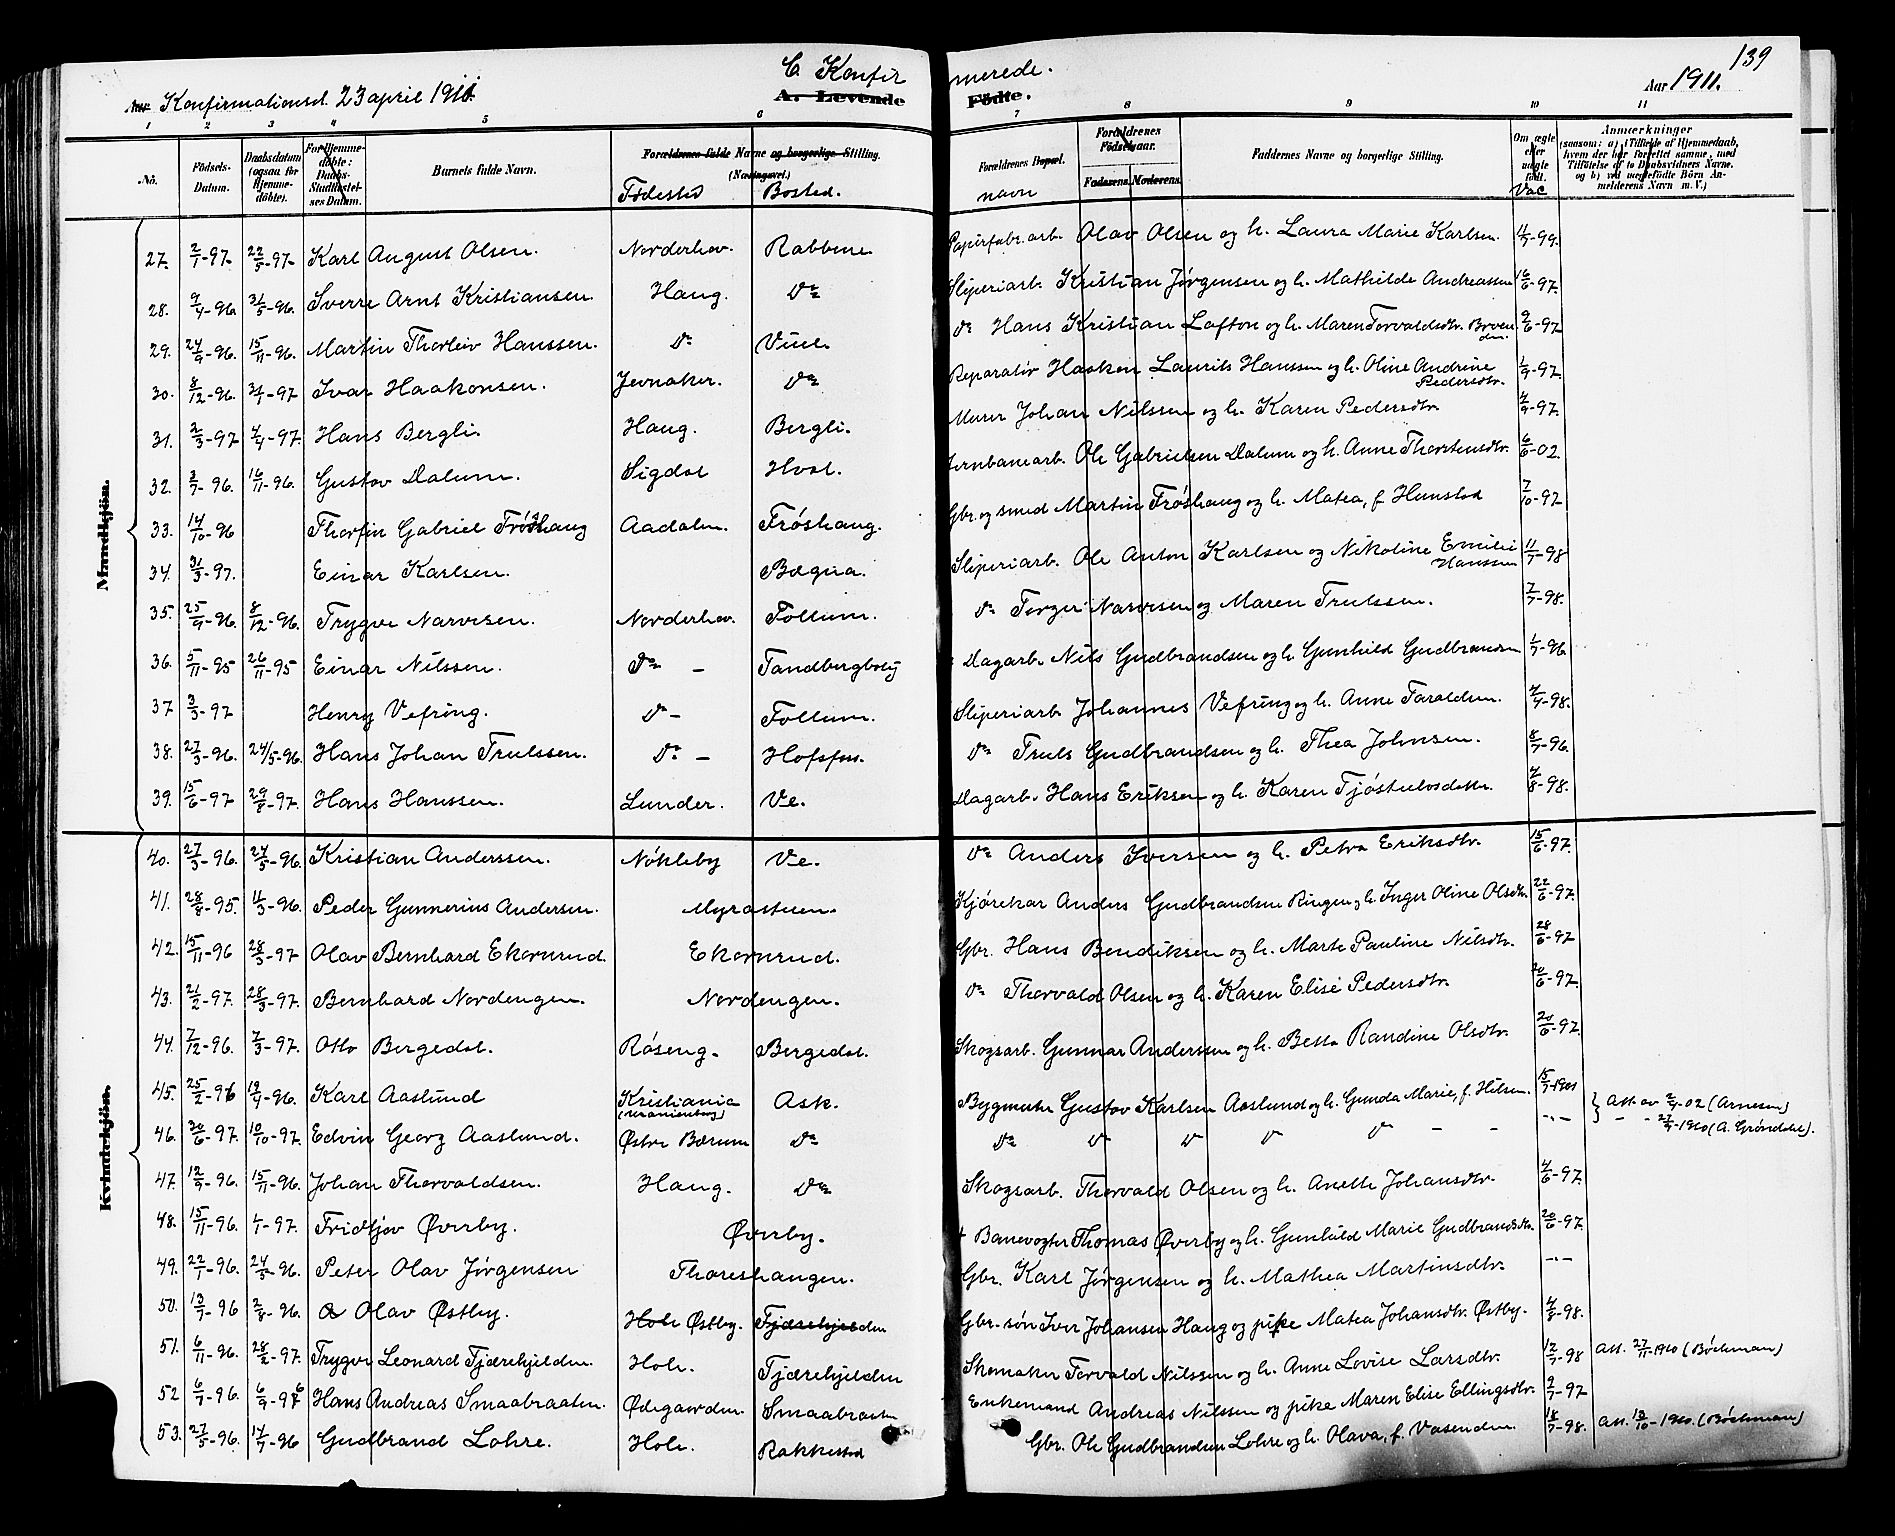 139
C Konfirmerede.
Aar Konfirmationsd. 23 april 1911.
A. Levende Födte.
Aar 1911.
1 2 3 4 5 6 7 8 9 10 11
No. Födsels-Datum. Daabsdatum (ogsaa for Hjemmedöbte). For Hjemmedöbte: Daabs-Stadfæstelses Datum. Barnets fulde Navn. Forældrenes fulde Navne og borgerlige Stilling. (Næringsvei.) Forældrenes Bopæl. Forældrenes Födselsaar. Faderens. Moderens. Faddernes Navne og borgerlige Stilling. Om ægte eller uægte födt. Anmærkninger (saasom: a) i Tilfælde af Hjemmedaab, hvem der har forrettet samme, med Tilföielse af to Daabsvidners Navne. og b) ved uægtefödte Börn Anmelderens Navn m. V.)
Födested Bosted. navn Vac
Mandkjön.
27. 2/1-97. 22/5-97. Karl August Olsen. Norderhov. Rabbene Papirfabr.arb. Olav Olsen og h. Laura Marie Karlsen. 4/7-99.
28. 9/4-96. 31/5-96. Sverre Arnt Kristiansen. Haug. Do Sliperiarb. Kristian Jørgensen og h. Mathilde Andreassen 16/6-97.
29. 24/9-96. 15/11-96. Martin Thorleiv Hanssen. Do Viul. do Hans Kristian Lofton og h. Maren Torvaldsdtr. Brvenden. 9/6-97
30. 8/12-96. 31/1-97 Ivar Haakonsen. Jevnaker. Do Reparatör Haaken Laurits Hanssen og h. Oline Andrine Pedersdtr. 1/9-97.
31. 2/3-97 4/4-97. Hans Bergli. Haug. Bergli. Murer Johan Nilssen og h. Karen Pedersdtr. 4/9-97.
32. 3/7-96. 16/11-96. Gustav Dalum. Sigdal Hval. Jernbanearb. Ole Gabrielsen Dalum og h. Anne Thorstensdtr. 6/6-02
33. 14/10-96 Thorfin Gabriel Fröshaug Aadalen. Fröshaug. Gbr. og smed Martin Fröshaug og h. Matea, f. Hunstad 7/10-97
34. 31/3-97. Einar Karlsen. Bægna. Sliperiarb. Ole Anton Karlsen og Nikoline Emilie Hanssen 11/7-98
35. 25/9-96. 8/12-96. Trygve Narvesen. Norderhov. Follum. do Torger Narvesen og Maren Trulssen. 7/7-98.
36. 5/11-95 26/11-95 Einar Nilssen. Do - Tandbergbolig Dagarb. Nils Gudbrandsen og h. Gunhild Gudbrandsen 1/7-96
37 3/3-97 Henry Vefring. D - Follum. Sliperiarb. Johannes Vefring og h. Anne Faraldsen. 4/4-98.
38. 27/3-96. 24/5-96. Hans Johan Trulssen. Do - Hofsfos. do Truls Gudbrandsen og h. Thea Johnsen. 8/7-96.
39. 15/6-97 29/8-97. Hans Hanssen. Lunder. Ve. Dagarb. Hans Eriksen og h. Karen Tjöstulvsdatter. 4/8-98.
Kvindekjön.
40. 27/3-96. 24/5-96. Kristian Anderssen. Nökleby Ve. do Anders Iversen og h. Petra Eriksdtr. 15/6-97.
41. 28/8-95. 1/3-96. Peder Gunnerius Andersen. Myrastuen. Kjörekar Anders Gudbrandsen Ringen og h. Inger Oline Olsdtr. 22/6-97.
42. 15/11-96 28/3-97 Olav Bernhard Ekornrud. Ekornrud. Gbr. Hans Bendiksen og h. Marte Pauline Nilsdtr. 28/6-97
43. 21/2-97. 28/3-97. Bernhard Nordengen. Nordengen. do Thorvald Olsen og h. Karen Elise Pedersdtr. 20/6-97.
44. 7/12-96. 7/3-97. Otto Bergedal. Röseng. Bergedal. Skogsarb. Gunnar Anderssen og h. Bessa Randine Olsdtr. 20/6-97.
45. 25/2-96 19/4-96. Karl Aaslund Kristiania (Uranienborg) Ask. Bygmester Gustav Karlsen Aaslund og h. Gunda Marie, f. Hilsen. 15/7-1901 Att. av 2/4-02 (Arnesen)
46. 30/6-97. 10/10-97. Edvin Georg Aaslund. Østre Bærum Do do " " " " - - -"- - - 27/4-1910 (A. Gröndahl).
47. 12/9-96. 15/11-96. Johan Thorvaldsen. Haug. Do Skogsarb. Thorvald Olsen og h. Anette Johansdtr. 4/6-97.
48. 15/11-96. 1/1-97. Fridtjov Øverby. Øverby. + Banevogter Thomas Øverby og h. Gunhild Marie Gudbrandsdtr. 20/6-97.
49. 22/1-96. 24/5-96. Peter Olav Jörgensen Thoreshaugen. Gbr. Karl Jörgensen og h. Mathea Martinsdtr. -"-
50. 13/7-96 2/8-96. Olav Østby. Hole Østby. Fjærehjelden Gbr. sön Iver Johansen Haug og pike Matea Johansdtr. Østby. 4/8-98.
51. 6/11-96. 28/2-97. Trygve Leonard Fjærehjelden. Hole. Fjærehjelden Skomaker Torvald Nilssen og h. Anne Lovise Larsdtr. 12/7-98 Att. 27/11-1910 (Böckman)
52 6/7-96. 6/9-96 Hans Andreas Smaabraaten. Ödegaarden. Smaabraaten Enkemand Andreas Nilssen og pike Maren Elise Ellingsdtr. 2/7-97
53. 27/5-96. 14/7-96 Gudbrand Lohre. Hole. Rakkestad Gbr. Ole Gudbrandsen Lohre og h. Olava, f. Vasenden. 18/7-98. Att. 13/10-1910. (Böckman)